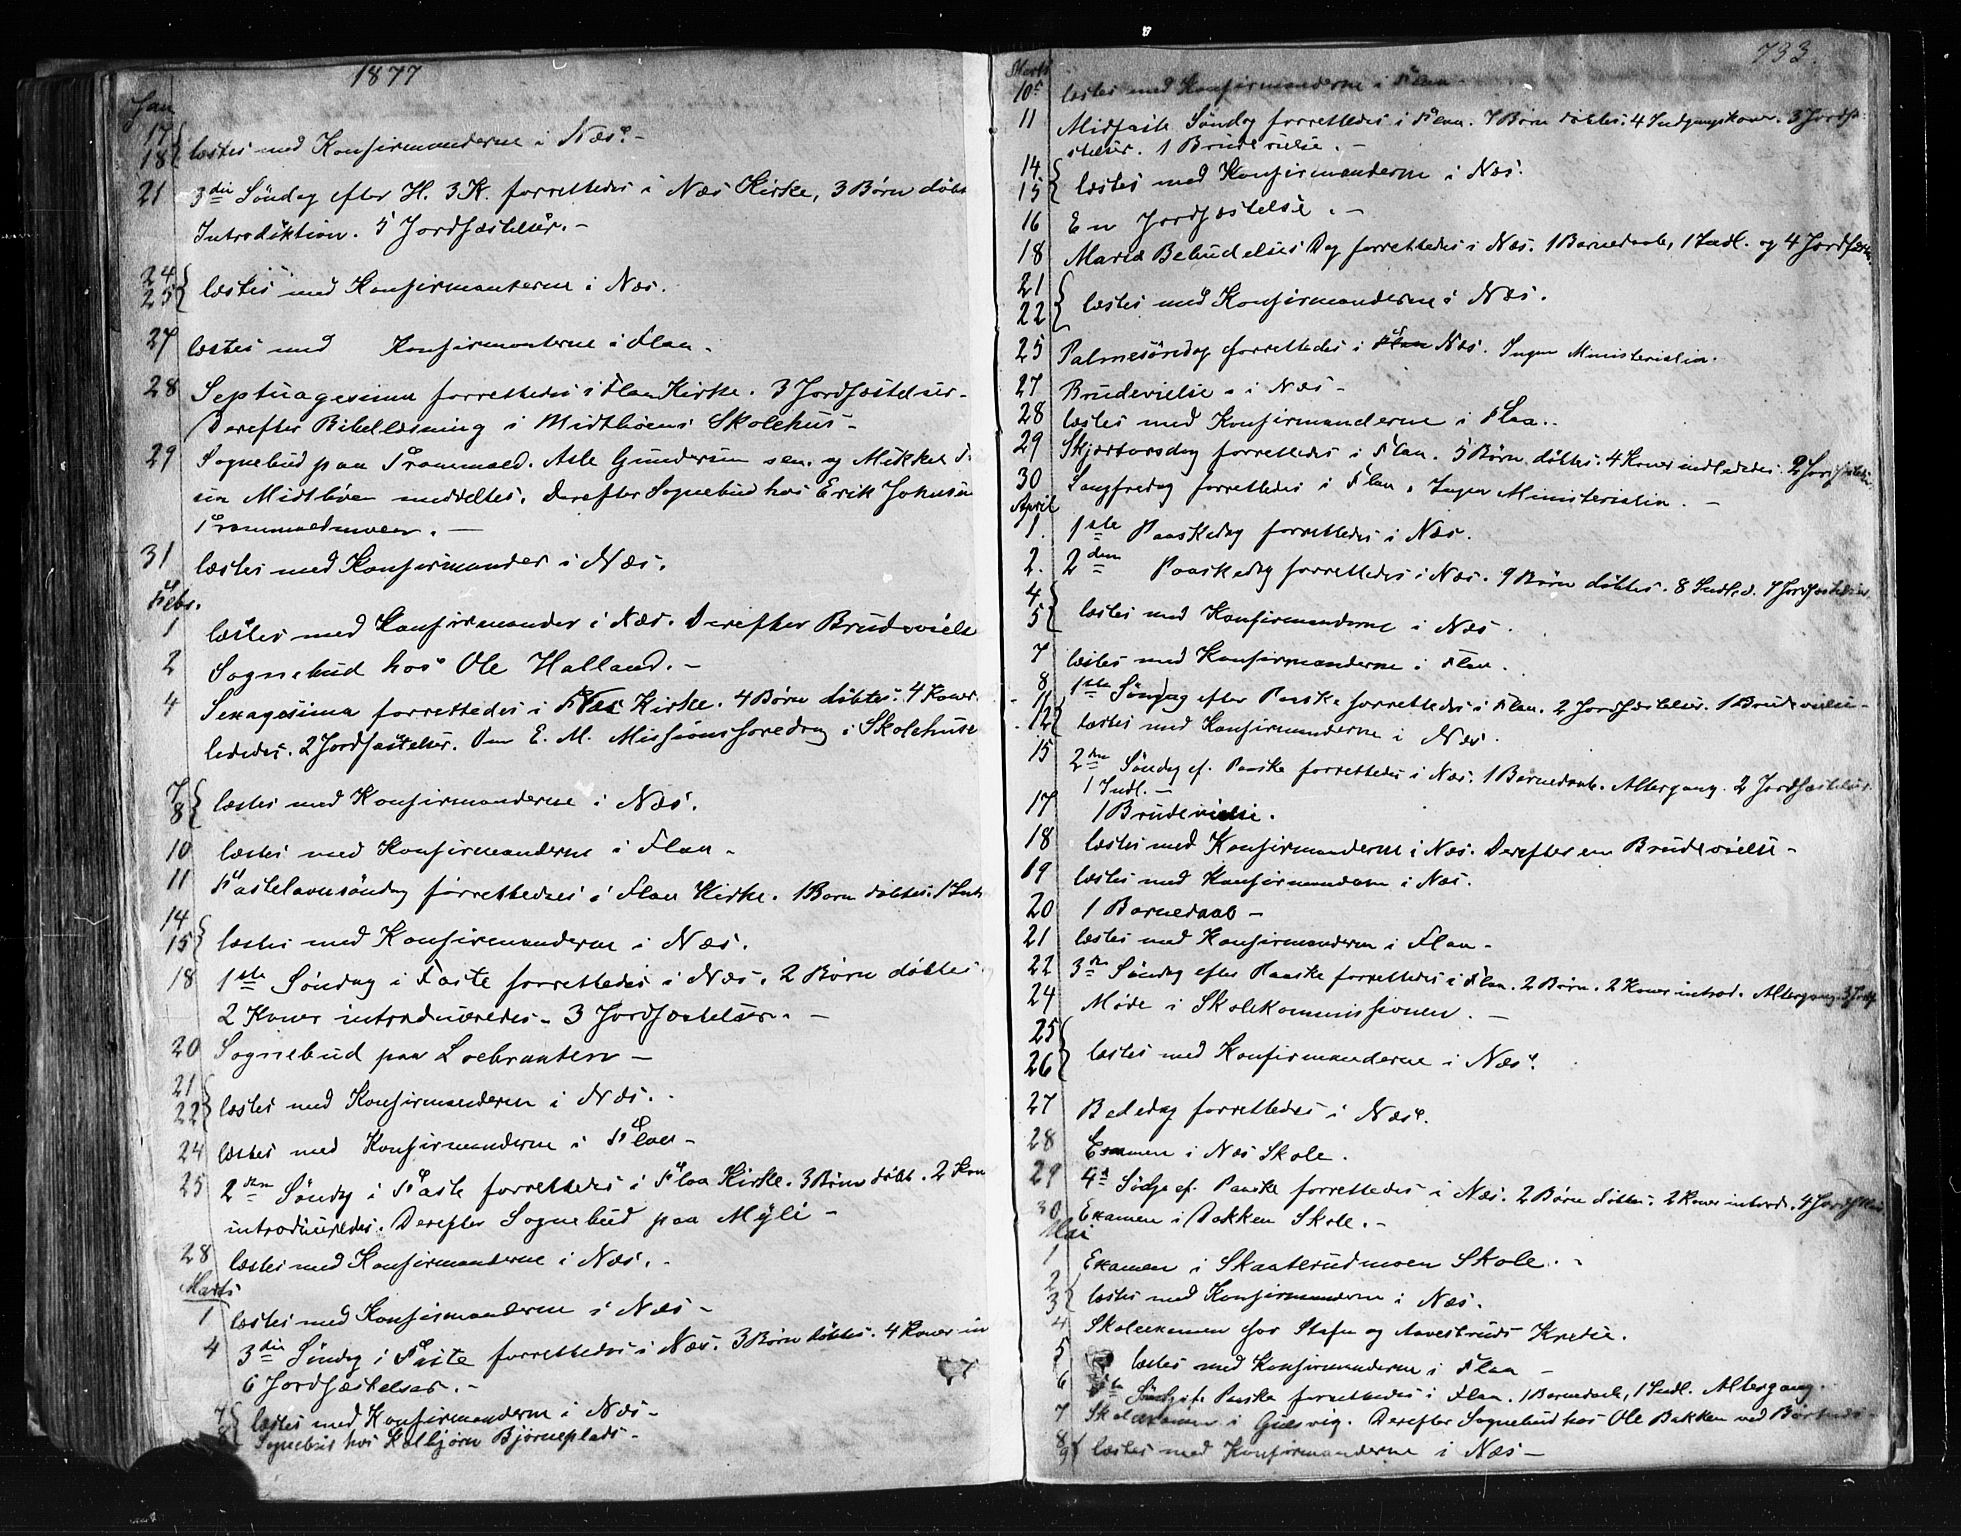 1877
Jan
17
18 læstes med Konfirmanderne i Næs. -
21 3die Søndag efter H. 3 K. forrettedes i Næs Kirke, 3 Børn døbt
Introduktion. 5 Jordfæstelser. -
24
25 læstes med Konfirmanterne i Næs.
27 læstes med Konfirmanterne i Flaa.
28 Septuagesima forrettedes i Flaa Kirke. 3 Jordfæstelser.
Derefter Bibellæsning i Midtbøens Skolehus -
29 Sognebud paa Trommald. Asle Gundersen sen. og Mikkel
Midtbøen meddeltes. Derefter Sognebud hos Erik Johnsen
Trommaldmoen. -
31 læstes med Konfirmander i Næs.
Febr.
1 læstes med Konfirmander i Næs. Derefter Brudevielse
2 Sognebud hos Ole Halland. -
4 Sexagesima forrettedes i Næs Kirke. 4 Børn døbtes. 4 Koner
lededes. 2 Jordfæstelser. Om E. M. Missionsforedrag i Skolehuse
7
8 læstes med Konfirmanderne i Næs.
10 læstes med Konfirmanderne i Flaa -
11 Fastelavnsøndag forrettedes i Flaa Kirke. 1 Barn døbtes. 1 Indl
14
15 læstes med Konfirmanderne i Næs.
18 1ste Søndag i Faste forrettedes i Næs. 2 Børn døbtes
2 Koner introduceredes. 3 Jordfæstelser. -
20 Sognebud paa Loebraaten -
21
22 læstes med Konfirmanderne i Næs.
24 læstes med Konfirmanderne i Flaa -
25 2den Søndag i Faste forrettedes i Flaa Kirke. 3 Børn døbt. 2 Kon
introduceredes. Derefter Sognebud paa Myli -
28 læstes med Konfirmanderne i Næs.
Marts
1 læstes med Konfirmanderne i Næs -
4 3die Søndag i Faste forrettedes i Næs. 3 Børn døbtes. 4 Koner in
6 Jordfæstelser. -
7
8 læstes med Konfirmanderne i Næs -
Sognebud hos Kolbjørn Bjørneplads -
733.
Marts
10 læstes med Konfirmanderne i Flaa
11 Midfaste Søndag forrettedes i Flaa. 7 Børn døbtes. 4 Indgangskoner. 3 Jordfæ-
stelser. 1 Brudevielse. -
14
15 læstes med Konfirmanderne i Næs.
16 En Jordfæstelse. -
18 Maria Bebudelses Dag forrettedes i Næs. 1 Barnedaab, 1 Indl. og 4 Jordfæst
21
22 læstes med Konfirmanderne i Næs.
25 Palmesøndag forrettedes i Flaa Næs. Ingen Ministerialia.
27 Brudevielse i Næs -
28 læstes med Konfirmanderne i Flaa.
29 Skjærtorsdag forrettedes i Flaa. 5 Børn døbtes. 4 Koner indlededes. 2 Jordfæstelser.
30 Langfredag forrettedes i Flaa. Ingen Ministerialia. -
April
1. 1ste Paaskedag forrettedes i Næs.
2. 2den Paaskedag forrettedes i Næs. 9 Børn døbtes. 8 Indled. 7 Jordfæstelser
4
5 læstes med Konfirmanderne i Næs.
7 læstes med Konfirmanderne i Flaa.
8 1ste Søndag efter Paaske forrettedes i Flaa. 2 Jordfæstelser. 1 Brudevielse -
11
12 læstes med Konfirmanderne i Næs.
15 2den Søndag ef. Paaske forrettedes i Næs. 1 Barnedaab. Altergang. 2 Jordfæstelser.
1 Indl. -
17 1 Brudevielse.
18 læstes med Konfirmanderne i Næs. Derefter en Brudevielse -
19 læstes med Konfirmanderne i Næs.
20 1 Barnedaab -
21 læstes med Konfirmanderne i Flaa -
22 3die Søndag efter Paaske forrettedes i Flaa. 2 Børn. 2 Koner introd. Altergang. 3 Jordf
24 Møde i Skolekommissionen. -
25
26 læstes med Konfirmanderne i Næs.
27 Bededag forrettedes i Næs.
28 Examen i Næs Skole.
29 4de Søndag ef. Paaske forrettedes i Næs. 2 Børn døbtes. 2 Koner introd. 4 Jordfæstelser
30 Examen i Bakken Skole. -
Mai
1 Examen i Skaaterudmoen Skole. -
2
3 læstes med Konfirmanderne i Næs.
4 Skoleexamen for Stafn og Aavestruds Kredse.
5 læstes med Konfirmanderne i Flaa -
6 5te Søndag ef. Paaske forrettedes i Flaa. 1 Barnedaab, 1 Indl. Altergang.
7 Skoleexamen i Gulsvig. Derefter Sognebud hos Ole Bakken ved Børtnes -
8
9 læstes med Konfirmanderne i Næs -